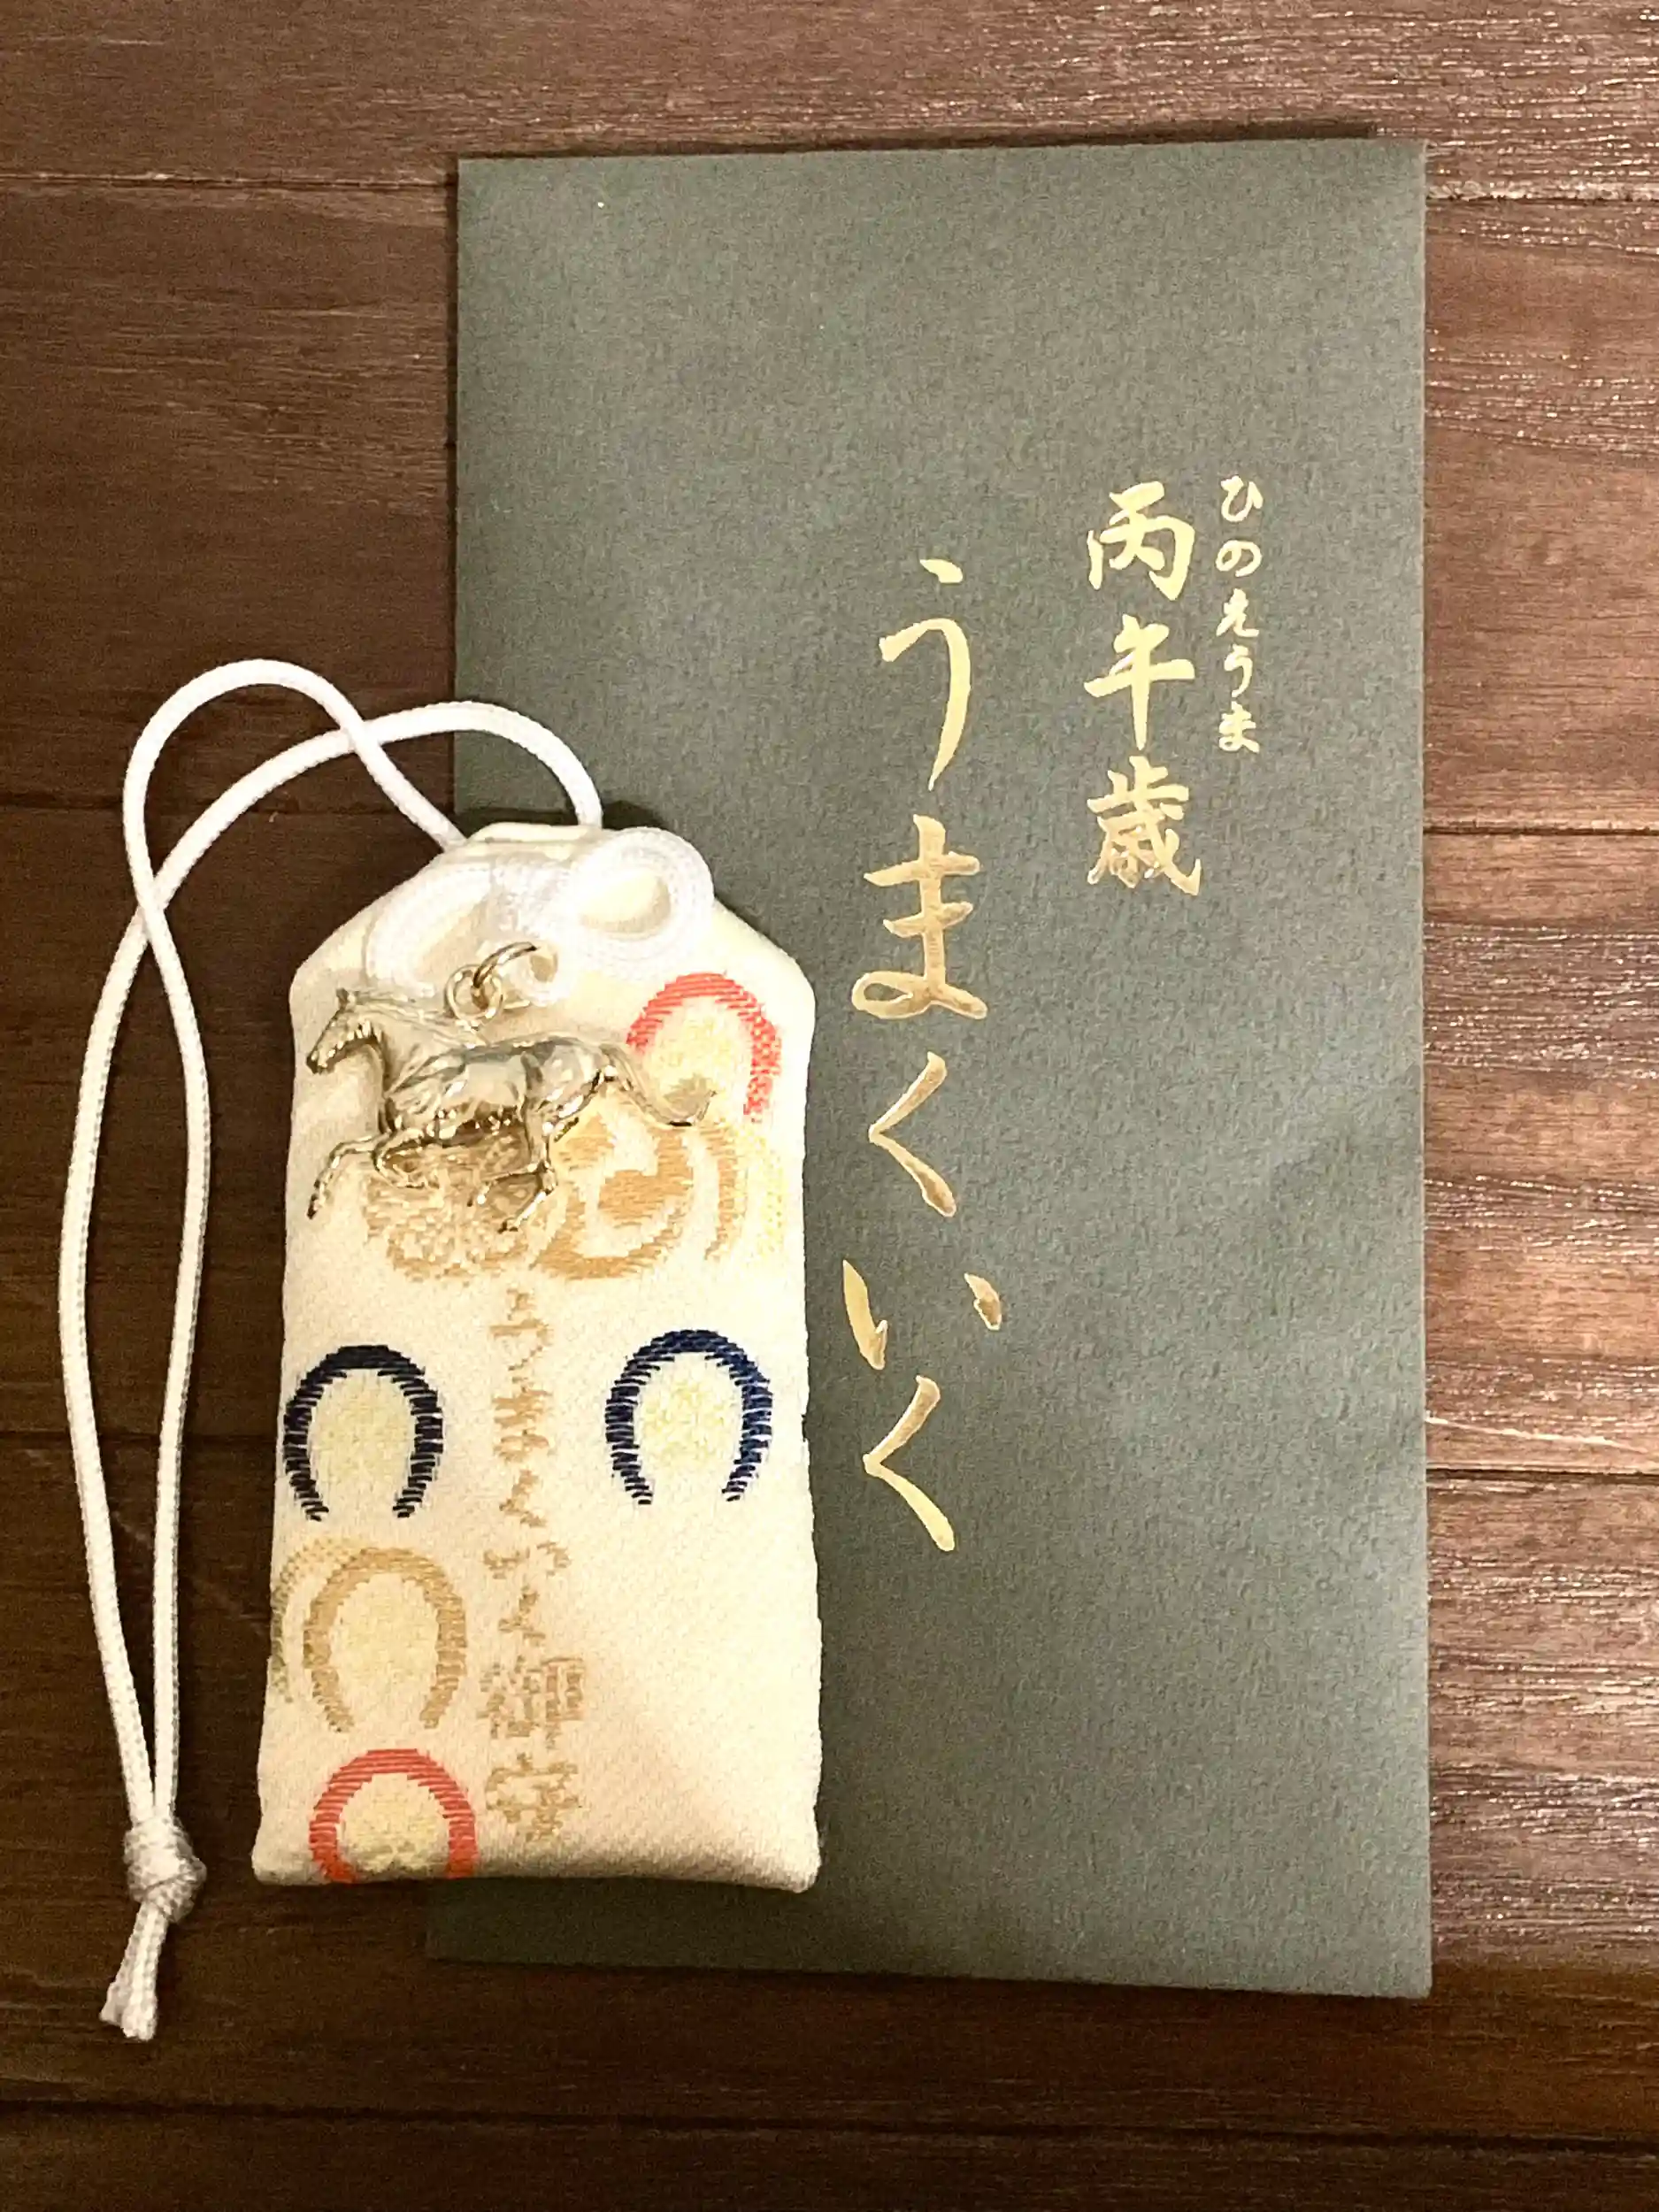 ひのえうま
丙午歳
うまくいく
うまくいく御守